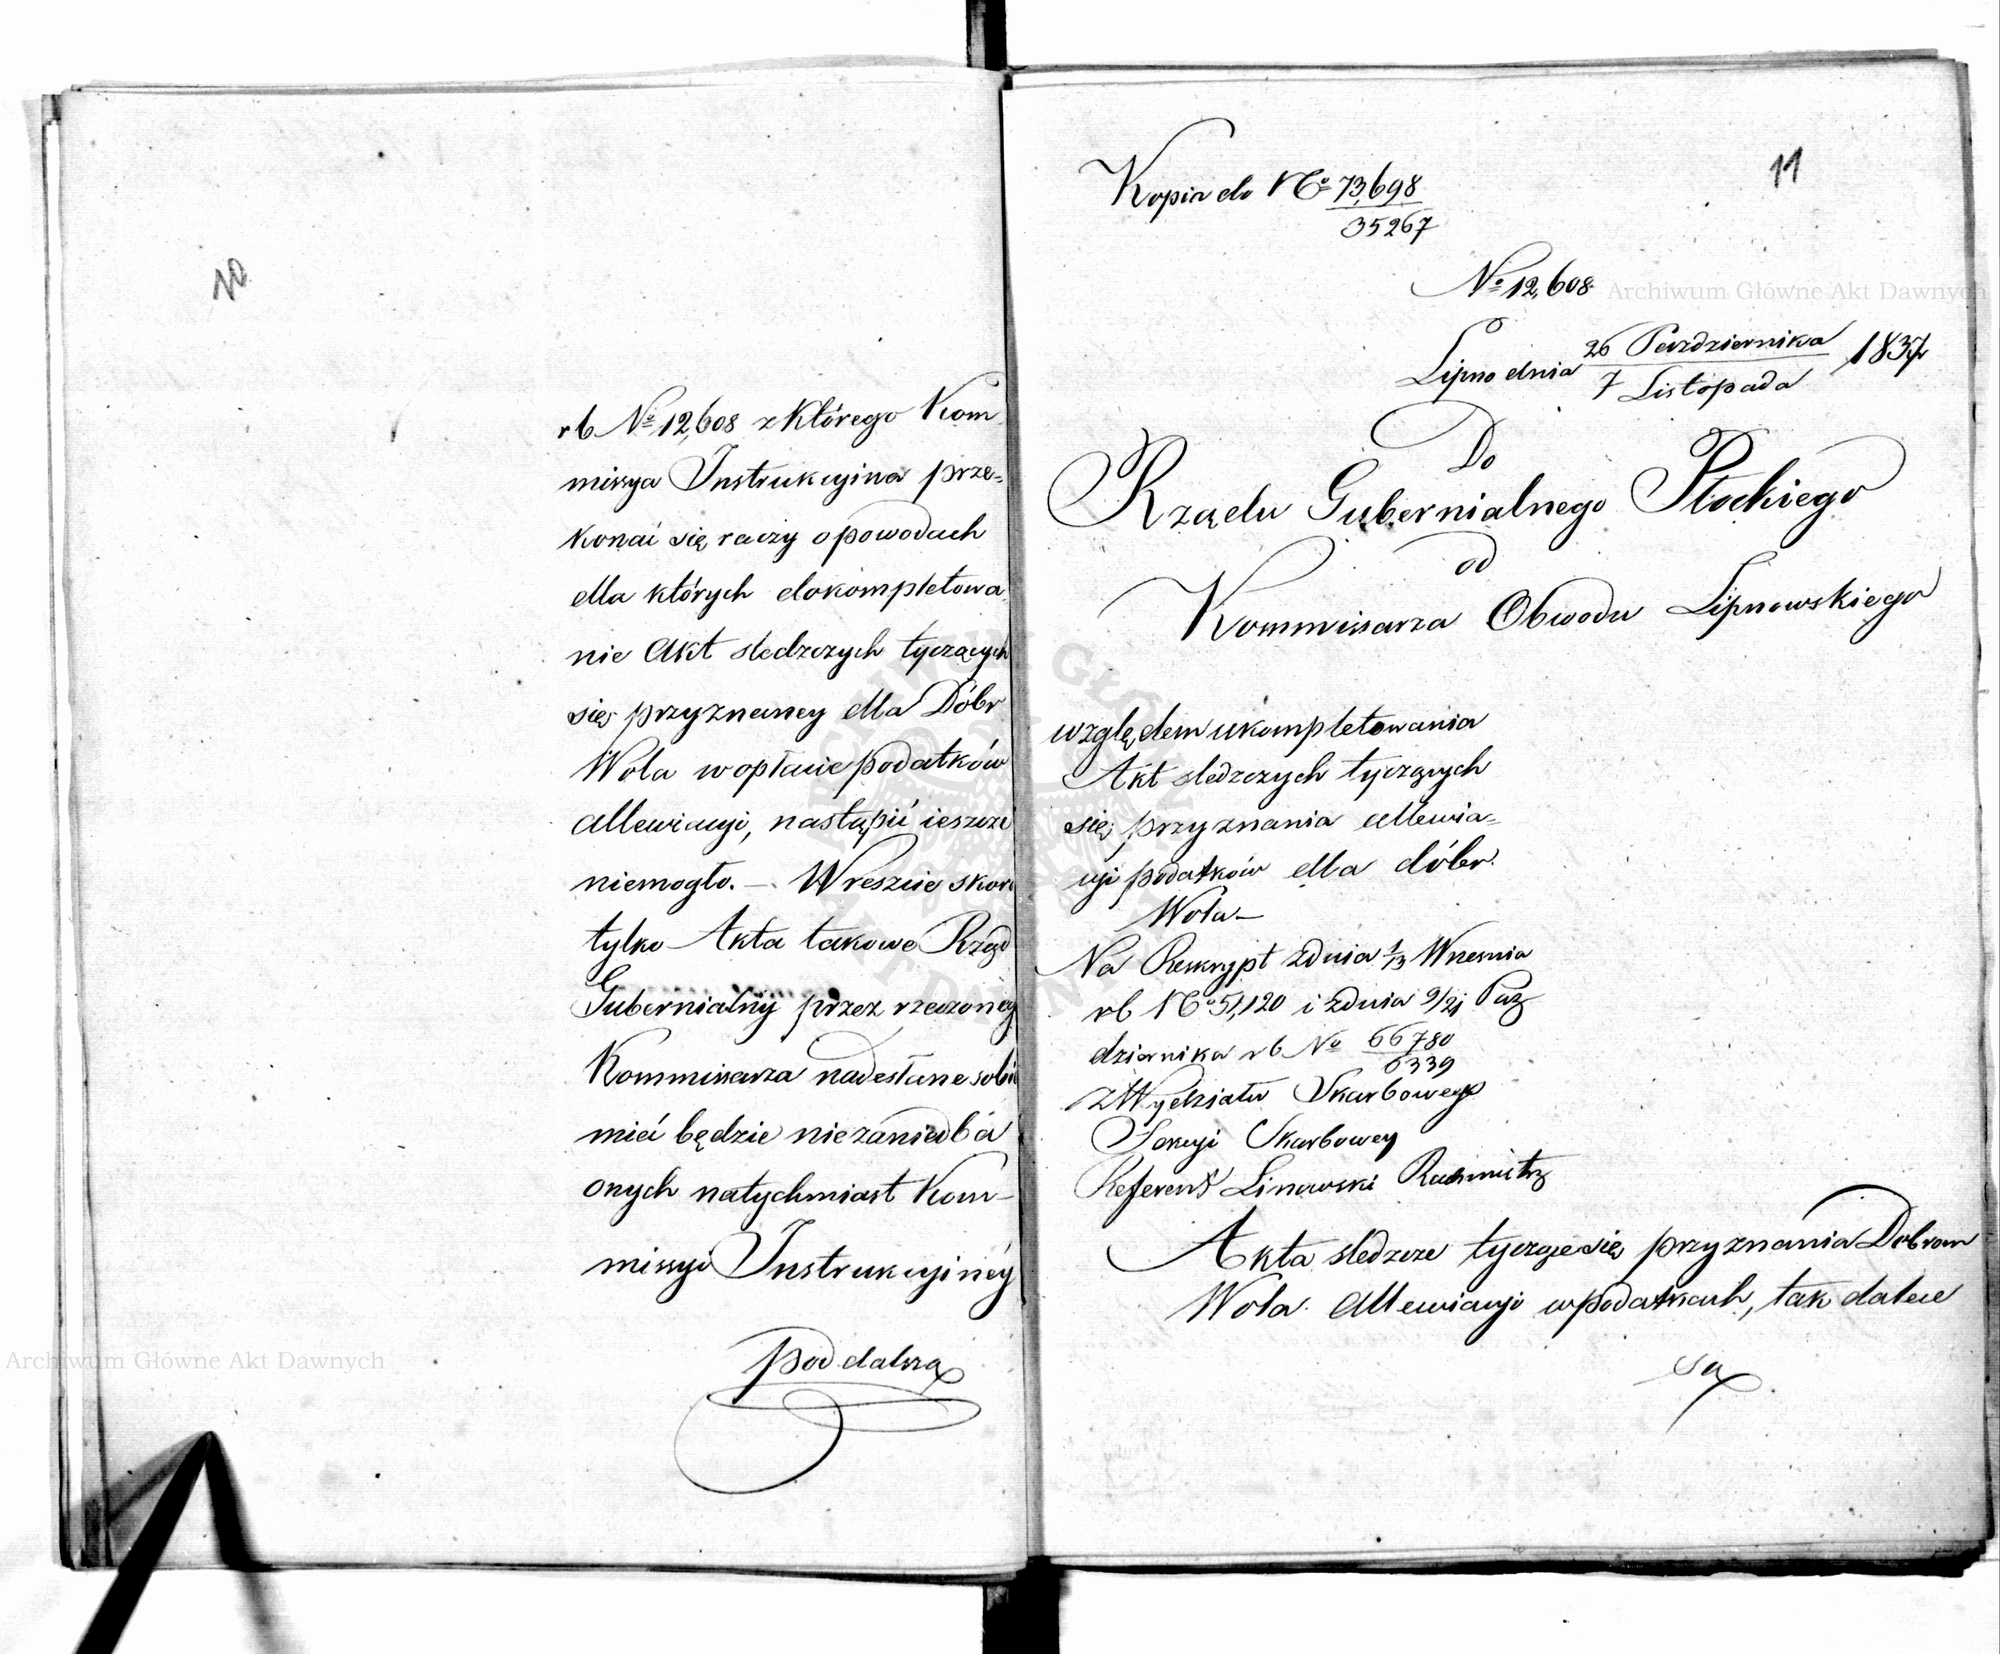 10
rb No 12,608 z którego Kom
missya Instrukcyina prze=
konać się raczy o powodach
dla których dokompletowa
nie Akt sledzczych tyczących
się przyznaney dla Dóbr
Wola w opłacie podatków
allewiacyi, nastąpić ieszcze
niemogło. — Wreszcie skoro
tylko Akta takowe Rząd
Gubernialny przez rzeczoneg
Kommissarza nadesłane sobie
mieć będzie niezaniedba
onych natychmiast Kom-
missyi Instrukcyinéy
pod dalsza
11
Kopia do No 73,698
35267
No 12,608
Lipno dnia 26 Pazdziernika / 7 Listopada 1837
Do
Rządu Gubernialnego Płockiego
od
Kommissarza Obwodu Lipnowskiego
względem ukompletowania
Akt sledzczych tyczących
się przyznania allewia=
cyi podatków dla dóbr
Wola —
Na Reskrypt z dnia 1/13 Wrzesnia
rb No 51,120 i z dnia 9/21 Paz
dziernika rb No 66780
6339
z Wydziału Skarbowego
Sekcyi Skarbowey
Referent Linowski Rachmistrz
Akta sledzcze tyczące się przyznania Dobrom
Wola Allewiacyi w podatkach, tak dalece
są
Archiwum Główne Akt Dawnych
Archiwum Główne Akt Dawnych